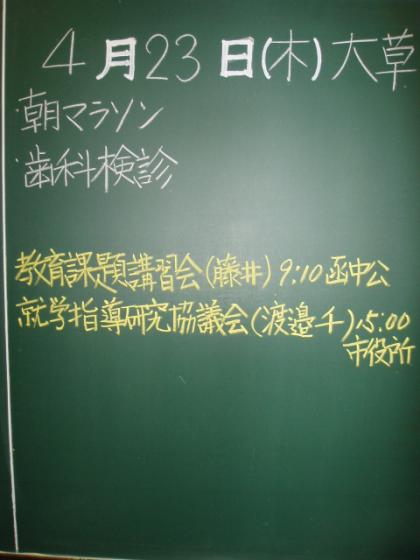 4月23日(木)大草
・朝マラソン
・歯科検診
教育課題講習会(藤井)9:10函中公
就学指導研究協議会(渡邉千)15:00
市役所